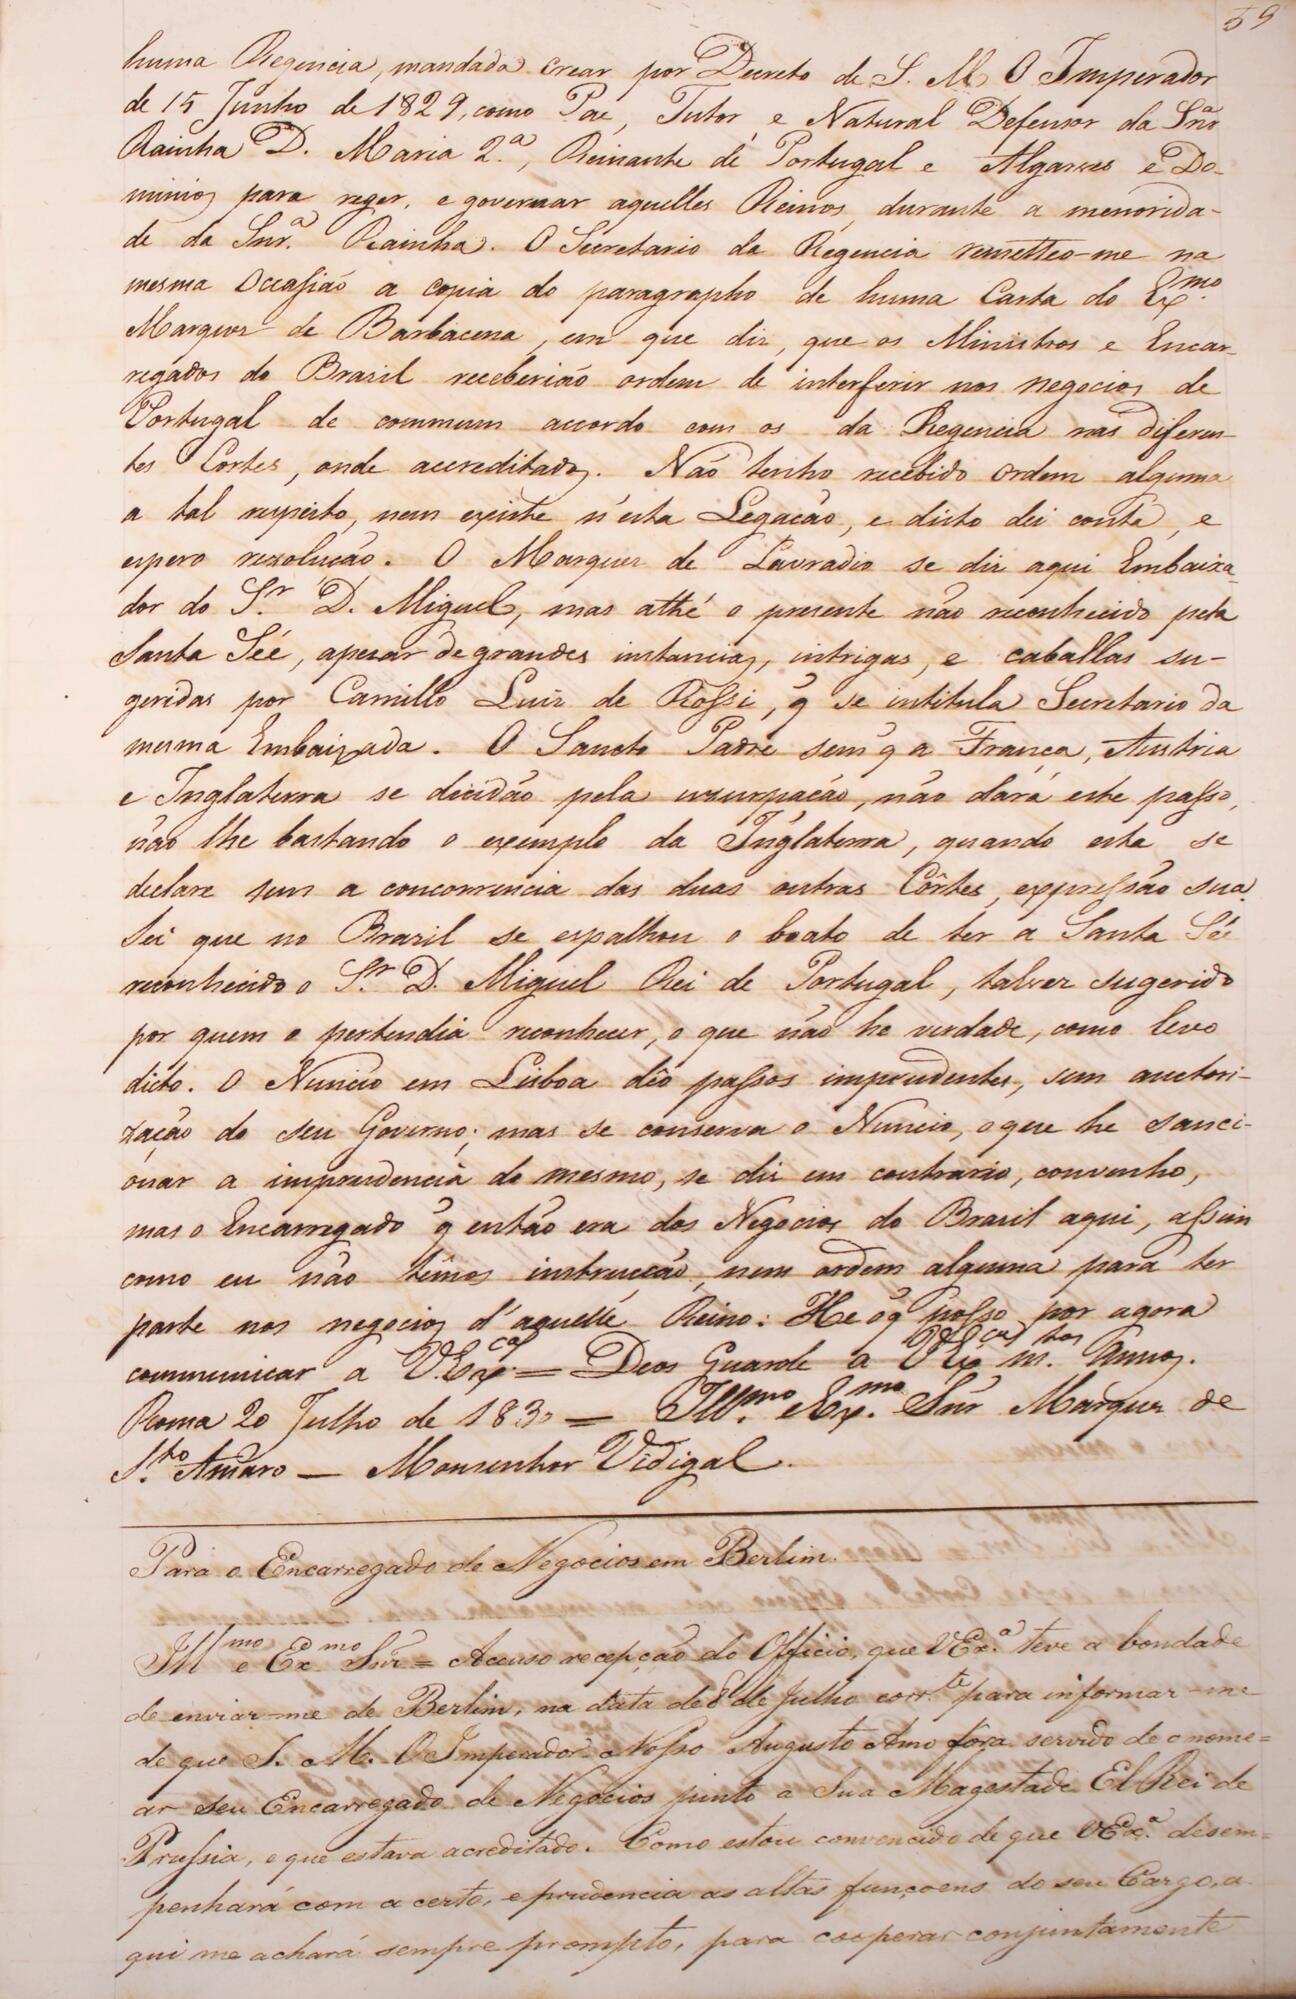 59
huma Regencia, mandada crear por Decreto de S. M. O Imperador
de 15 Junho de 1829, como Pae, Tutor e Natural Defensor da Snrª
Rainha D. Maria 2.ª, Reinante de Portugal e Algarves e Do-
minios para reger, e governar aquelles Reinos, durante a menorida-
de da Snr.ª Rainha. O Secretario da Regencia remetteo-me na
mesma Occasião a copia do paragrapho de huma Carta do Ex.mo
Marquez de Barbacena, em que diz, que os Ministros e Encar-
regados do Brazil receberião ordem de interferir nos negocios de
Portugal de commum accordo com os da Regencia nas diferen-
tes Cortes, onde accreditados. Não tenho recebido ordem alguma
a tal respeito, nem existe n'esta Legacão, e disto dei conta, e
espero rezolução. O Marquez de Lavradio se diz aqui Embaixa-
dor do S.r D. Miguel, mas athé o presente não reconhecido pela
Santa Sée, apezar de grandes instancias, intrigas, e caballas su-
geridas por Camillo Luiz de Rossi, q̃ se intitula Secretario da
mesma Embaixada. O Sancto Padre sem q̃ a França, Austria
e Inglaterra se decidão pela uzurpação, não dará este passo,
não lhe bastando o exemplo da Inglaterra, quando esta se
declare sem a concorrencia das duas outras Côrtes, expressão sua.
Sei que no Brazil se espalhou o boato de ter a Santa Sée
reconhecido o S.r D. Miguel Rei de Portugal, talvez sugerido
por quem o pertendia reconhecer, o que não he verdade, como levo
dicto. O Nuncio em Lisboa dêo passos imprudentes, sem auctori-
zação do seu Governo; mas se conserva o Nuncio, o que he sanci-
onar a imprudencia do mesmo, se diz em contrario, convenho,
mas o Encarregado q̃ então era dos Negocios do Brasil aqui, assim
como eu não têmos instrucção, nem ordem alguma para ter
parte nos negocios d'aquelle Reino: He o q̃ posso por agora
communicar a V.Exca = Deos Guarde a V.Exca m.tos Annos.
Roma 20 Julho de 1830 = Ill.mo e Ex.mo Snr Marquez de
S.to Amaro — Monsenhor Vidigal.
Para o Encarregado de Negocios em Berlim.
Illmo e Exmo Snr = Accuso recepção do Officio, que VEx.ª teve a bondade
de enviar-me de Berlim, na data de 8 de Julho corr.te para informar-me
de que S. M. O Imperador Nosso Augusto Amo fôra servido de o nome=
ar seu Encarregado de Negocios junto a Sua Magestade El Rei de
Prussia, e que estava acreditado. Como estou convencido de que VEx.ª desem=
penhará com acerto, e prudencia as altas funçoens do seu Cargo, a-
qui me achará sempre prompto, para cooperar conjuntamente